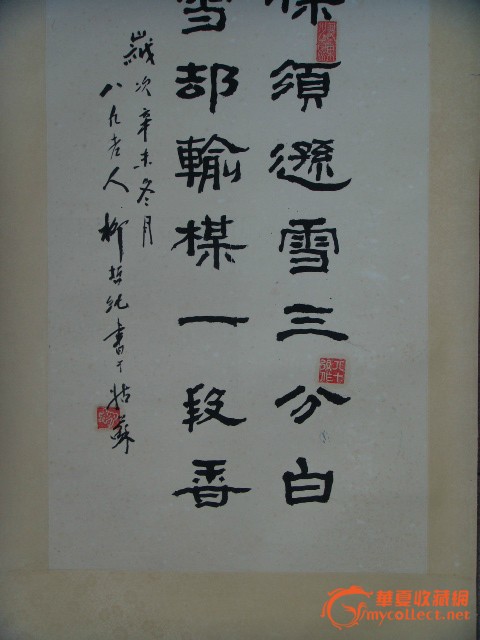 楳須遜雪三分白
雪却輸楳一段香
歲次辛未冬月
八老人柳書于姑蘇
八十
華夏收藏網
mycollect.net